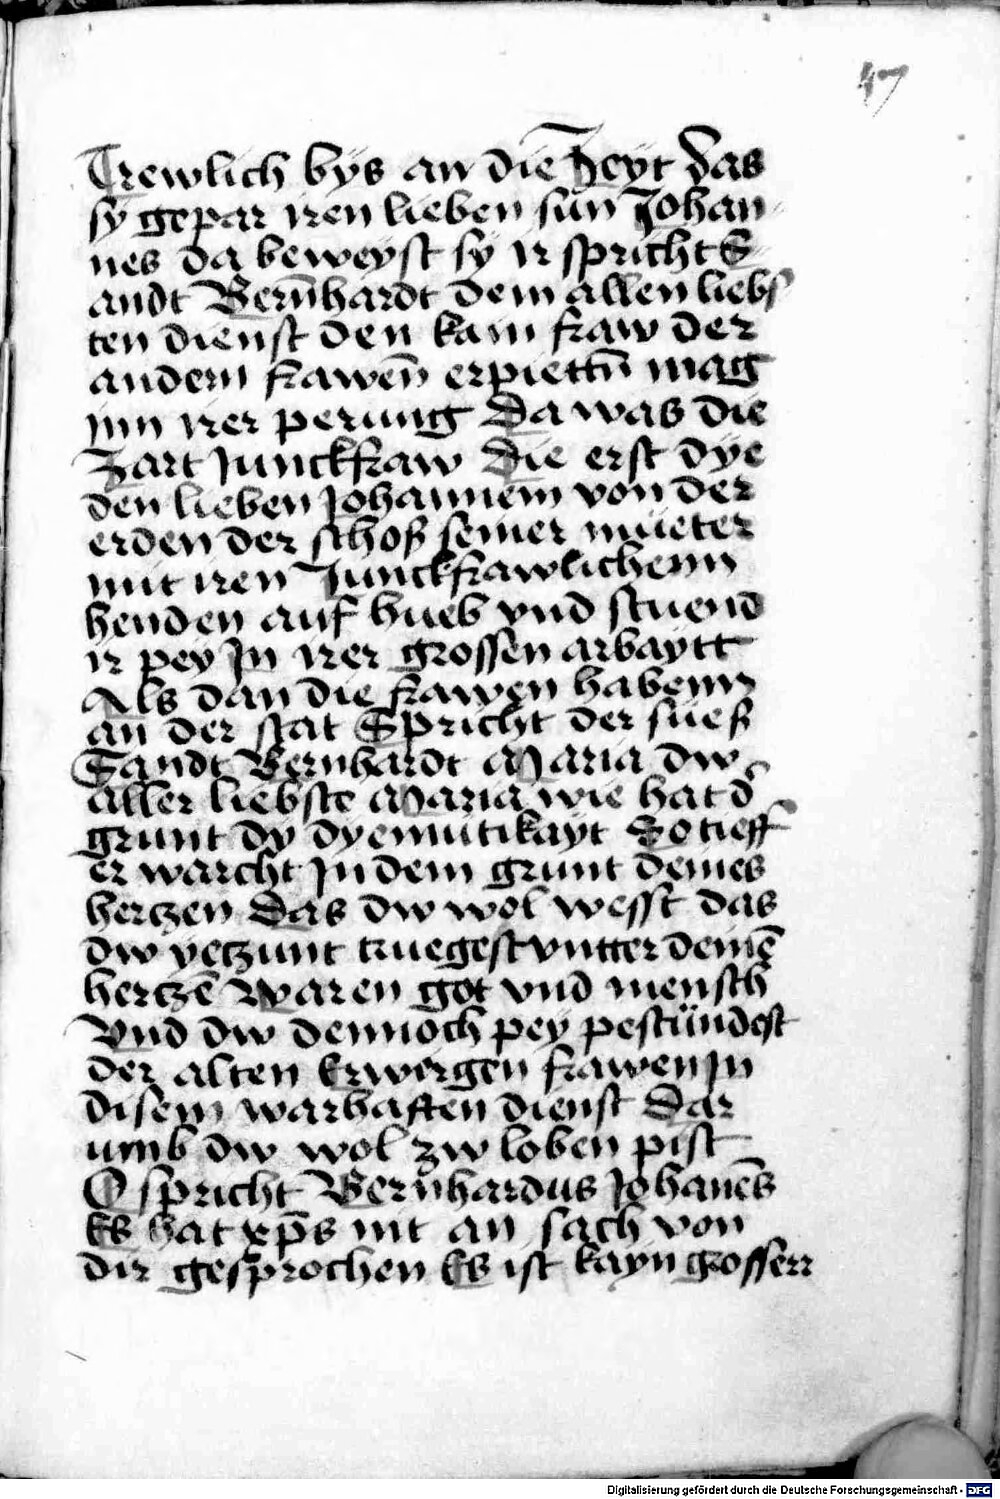 47
Trewlich bys an die Zeyt das
sy gepar iren lieben sun Johan
nes da beweyst sy ir spricht S
andt Bern̄hardt dem allen liebs
ten dienst den kain fraw der
andern frawen̄ erpiettn̄ mag
inn irer perung Da was die
Zart Junckfraw Die erst dye
den lieben Johannem von der
erden der schoß seiner mueter
mit iren Junckfrawlichenn
henden auf hueb vnd stuend
ir pey Jn irer grossen arbaytt
Als dan die frawen habenn
an der stat Spricht der sueß
Sandt Bernhardt Maria dw
aller liebste Maria wie hat d
grunt dy dyemutikayt So tieff
er warcht Jn dem grunt deines
hertzen Das dw wol wesst das
dw yetzunt truegest vntter deinē
hertzē Waren got vnd mensch
Vnd dw dennoch pey pestundest
der alten Erwirgen frawen Jn
disem warhaften dienst Dar
umb dw wol zw loben pist
O spricht Bernhardus Johanēs
Es hat xp̄s nit an sach von
dir gesprochen Es ist kayn grosserr
Digitalisierung gefördert durch die Deutsche Forschungsgemeinschaft - DFG